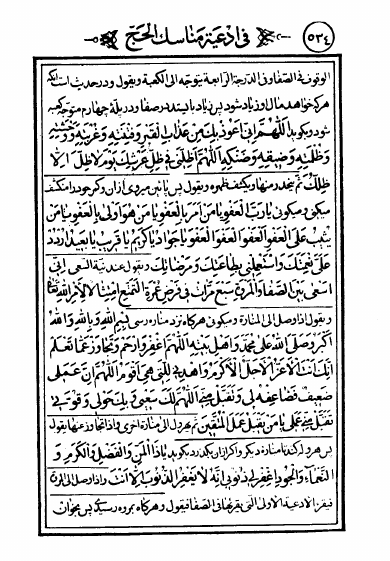 ٥٣٤
في ادعية مناسك الحج
الوقوف في الصفا و في الدرجة الرابعة يتوجه الى الكعبة ويقول و در حديث است كه
هركه خواهد مال او زياد شود پس زياد بايستد در صفا و در پلۀ چهارم متوجه كعبه
شود وبگويد اَللّٰهُمَّ اِنّى اَعُوذُ بِكَ مِنْ عَذابِ الْقَبْرِ وَفِتْنَتِهِ وَغُرْبَتِهِ وَوَحْشَتِهِ
وَظُلْمَتِهِ وَضيقِهِ وَضَنْكِهِ اَللّٰهُمَّ اَظِلَّنى فى ظِلِّ عَرْشِكَ يَوْمَ لا ظِلَّ اِلّا
ظِلُّكَ ثم ينحدر منها و يكشف ظهره ويقول پس پائين ميرود از ان وكمر خود را منكشف
ميكند و ميگويد يا رَبَّ الْعَفْوِ يا مَنْ اَمَرَ بِالْعَفْوِ يا مَنْ هُوَ اَوْلى بِالْعَفْوِ يا مَنْ
يُثيبُ عَلَى الْعَفْوِ اَلْعَفْوَ الْعَفْوَ الْعَفْوَ يا جَوادُ يا كَريمُ يا قَريبُ يا بَعيدُ اُرْدُدْ
عَلَىَّ نِعْمَتَكَ وَاسْتَعْمِلْنى بِطاعَتِكَ وَمَرْضاتِكَ ويقول عند نية السعى اِنّى
اَسْعى بَيْنَ الصَّفا وَالْمَرْوَةِ سَبْعَ مَرّاتٍ فى فَرْضِ عُمْرَةِ التَّمَتُّعِ اِمْتِثالًا لِاَمْرِ اللهِ تَعالى
ويقول اذا وصل الى المنارة و ميگويى هرگاه نزد مناره رسى بِسْمِ اللهِ وَبِاللهِ وَاللهُ
اَكْبَرُ وَصَلَّى اللهُ عَلى مُحَمَّدٍ وَاَهْلِ بَيْتِهِ اَللّٰهُمَّ اغْفِرْ وَارْحَمْ وَتَجاوَزْ عَمّا تَعْلَمُ
اِنَّكَ اَنْتَ الْاَعَزُّ الْاَجَلُّ الْاَكْرَمُ وَاهْدِنى لِلَّتى هِىَ اَقْوَمُ اَللّٰهُمَّ اِنَّ عَمَلى
ضَعيفٌ فَضاعِفْهُ لى وَتَقَبَّلْ مِنّى اَللّٰهُمَّ لَكَ سَعْيى وَبِكَ حَوْلى وَقُوَّتى
تَقَبَّلْ مِنّى عَمَلى يا مَنْ يَقْبَلُ عَمَلَ الْمُتَّقينَ ثم يهرول الى منارة اخرى و اذا تجاوزعنها يقول
پس هروله كند تا مناره ديگر و اگر از ان بگذرد بگويد يا ذَا الْمَنِّ وَالْفَضْلِ وَالْكَرَمِ وَ
النَّعْماءِ وَالْجُودِ اِغْفِرْ لى ذُنُوبى اِنَّهُ لا يَغْفِرُ الذُّنُوبَ اِلّا اَنْتَ و اذا وصل المروة
فيقرء الادعية الاولى التى يقرئها فى الصفا فيقول و هرگاه بمروه رسيد پس بخوان